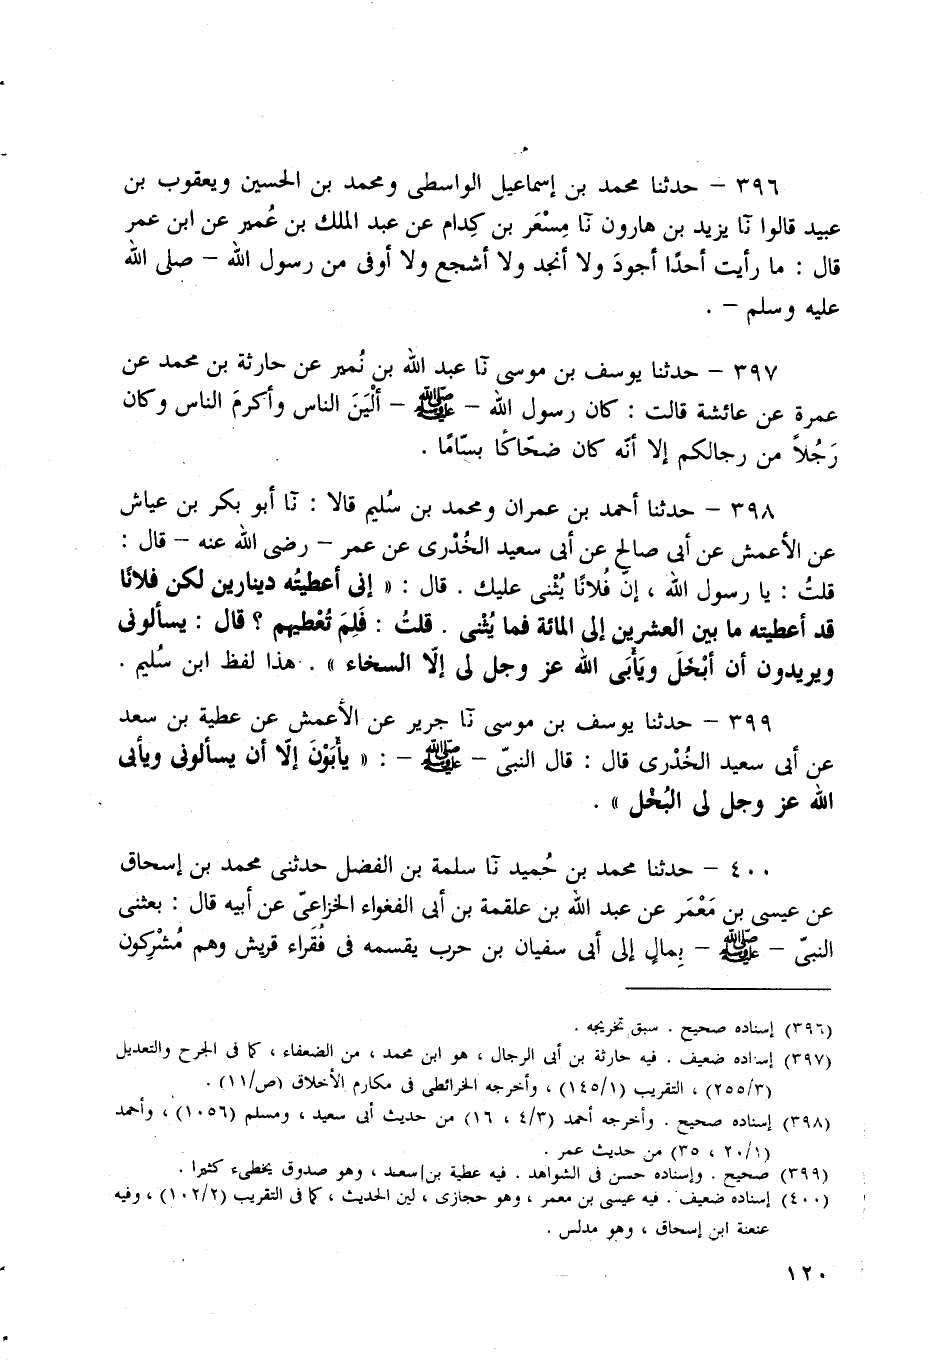 ٣٩٦ – حدثنا محمد بن إسماعيل الواسطى ومحمد بن الحسين ويعقوب بن
عبيد قالوا نَا يزيد بن هارون نَا مِسْعَر بن كِدام عن عبد الملك بن عُمير عن ابن عمر
قال : ما رأيت أحدًا أجودَ ولا أنجد ولا أشجع ولا أوفى من رسول الله – صلى الله
عليه وسلم – .
٣٩٧ – حدثنا يوسف بن موسى نَا عبد الله بن نُمير عن حارثة بن محمد عن
عمرة عن عائشة قالت : كان رسول الله – ﷺ – ألْيَنَ الناس وأكرمَ الناس وكان
رَجُلاً من رجالكم إلا أنّه كان ضحّاكًا بسّامًا .
٣٩٨ – حدثنا أحمد بن عمران ومحمد بن سُليم قالا : نَا أبو بكر بن عياش
عن الأعمش عن أبى صالح عن أبى سعيد الخُدْرى عن عمر – رضى الله عنه – قال :
قلتُ : يا رسول الله ، إنّ فُلانًا يُثْنى عليك . قال : « إنى أعطيتُه دينارين لكن فلانًا
قد أعطيته ما بين العشرين إلى المائة فما يُثْنى . قلتُ : فَلِمَ تُعْطيهم ؟ قال : يسألونى
ويريدون أن أبْخَلَ ويَأْبَى الله عز وجل لى إلّا السخاء » . هذا لفظ ابن سُليم .
٣٩٩ – حدثنا يوسف بن موسى نَا جرير عن الأعمش عن عطية بن سعد
عن أبى سعيد الخُدْرى قال : قال النبىّ – ﷺ – : « يأْبَوْنَ إلّا أن يسألونى ويأبى
الله عز وجل لى البُخْل » .
٤٠٠ – حدثنا محمد بن حُميد نَا سلمة بن الفضل حدثنى محمد بن إسحاق
عن عيسى بن مَعْمَر عن عبد الله بن علقمة بن أبى الفغواء الخزاعىّ عن أبيه قال : بعثنى
النبىّ – ﷺ – بِمالٍ إلى أبى سفيان بن حرب يقسمه فى فُقَراء قريش وهم مُشْرِكون
(٣٩٦) إسناده صحيح . سبق تخريجه .
(٣٩٧) إسناده ضعيف . فيه حارثة بن أبى الرجال ، هو ابن محمد ، من الضعفاء ، كما فى الجرح والتعديل
(٢٥٥/٣) ، التقريب (١٤٥/١) ، وأخرجه الخرائطى فى مكارم الأخلاق (ص/١١) .
(٣٩٨) إسناده صحيح . وأخرجه أحمد (٤/٣ ، ١٦) من حديث أبى سعيد ، ومسلم (١٠٥٦) ، وأحمد
(٢٠/١ ، ٣٥) من حديث عمر .
(٣٩٩) صحيح . وإسناده حسن فى الشواهد . فيه عطية بن سعد ، وهو صدوق يخطىء كثيرا .
(٤٠٠) إسناده ضعيف . فيه عيسى بن معمر ، وهو حجازى ، لين الحديث ، كما فى التقريب (١٠٢/٢) ، وفيه
عنعنة ابن إسحاق ، وهو مدلس .
١٢٠